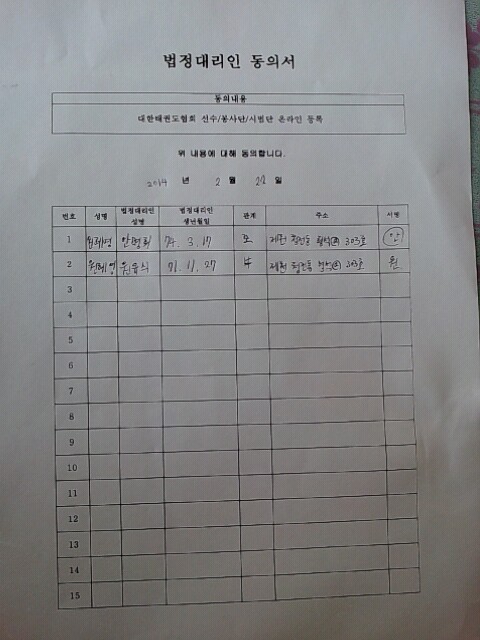 법정대리인 동의서
동의내용
대한태권도협회 선수/봉사단/시범단 온라인 등록
위 내용에 대해 동의합니다.
2014 년 2 월 22 일
번호 성명 법정대리인 성명 법정대리인 생년월일 관계 주소 서명
1 74. 3. 17 모 303호 안
2 71. 11. 27 부 303호 원
3
4
5
6
7
8
9
10
11
12
13
14
15